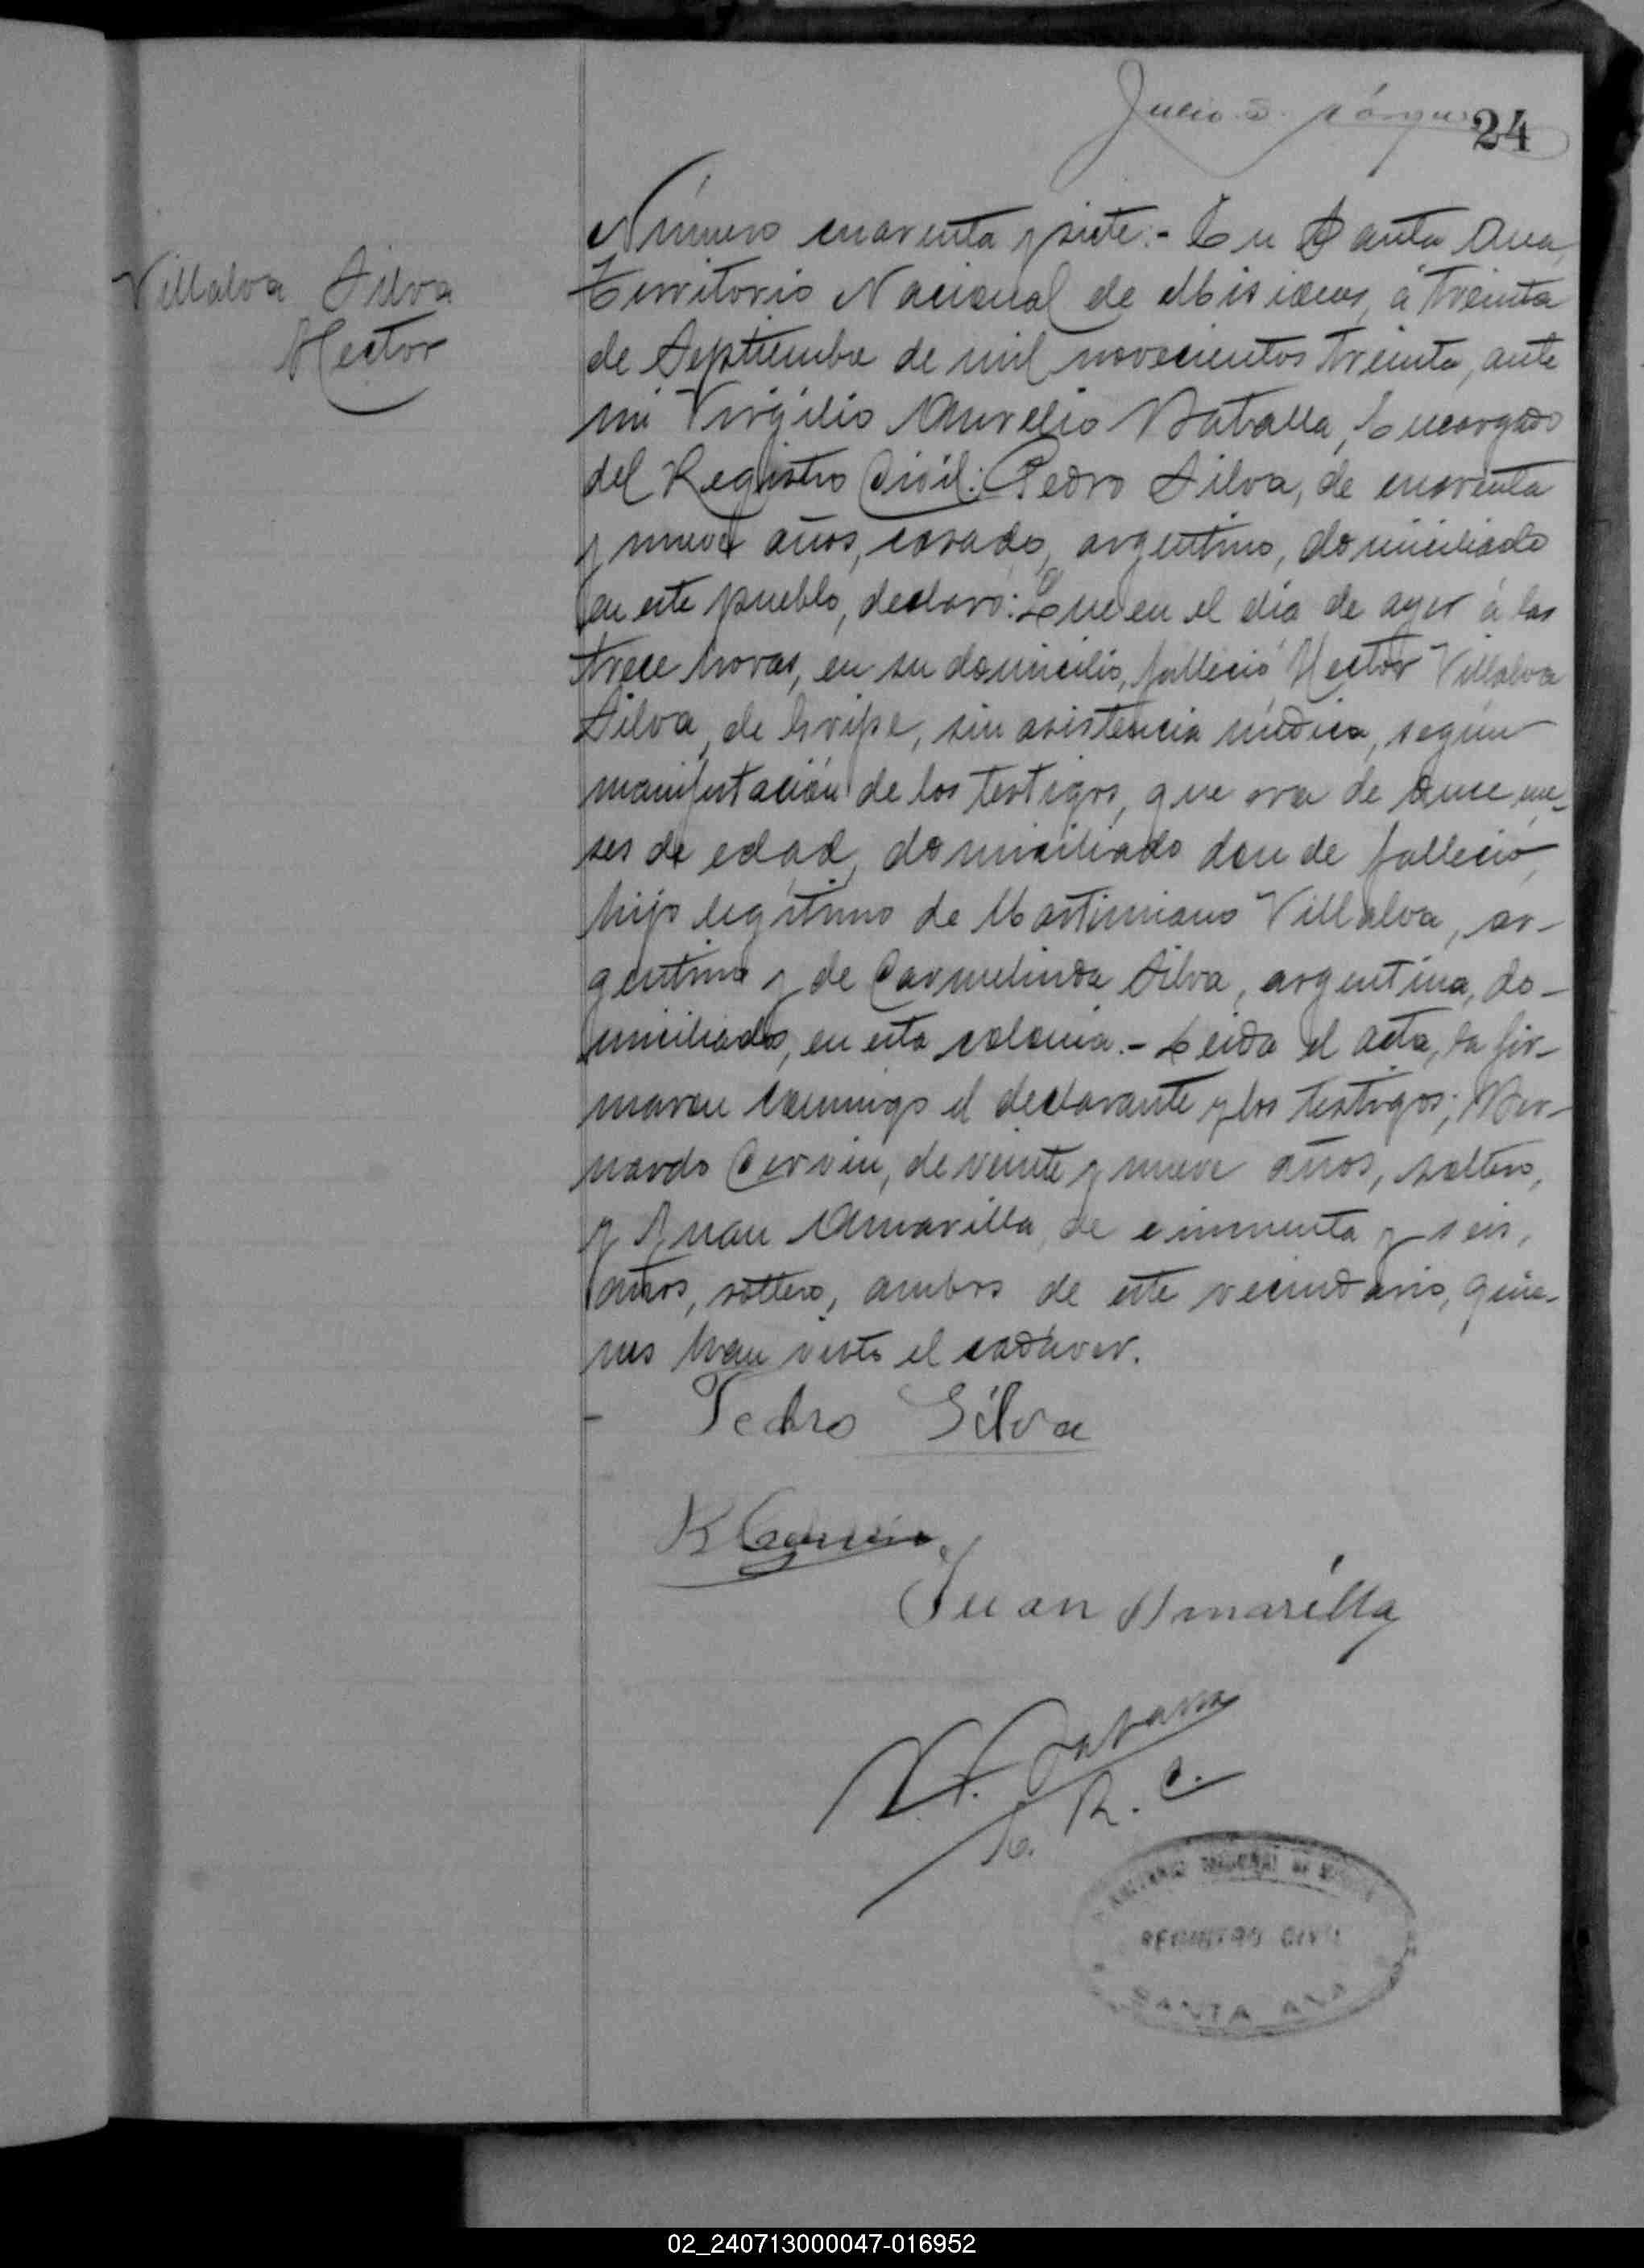 Julio
24
Villalva Silva
Hector
Número cuarenta y siete.- En Santa Ana,
Territorio Nacional de Misiones, á treinta
de Septiembre de mil novecientos treinta, ante
mi Virgilio Aurelio Batalla, Encargado
del Registro Civil: Pedro Silva, de cuarenta
y nueve años, casado, argentino, domiciliado
en este pueblo, declaró: Que en el día de ayer á las
trece horas, en su domicilio, falleció Hector Villalva
Silva, de Gripe, sin asistencia médica, según
manifestación de los testigos, que era de once me-
ses de edad, domiciliado donde falleció,
hijo legítimo de Martimiano Villalva, ar-
gentino y de Carmelinda Silva, argentina, do-
miciliados, en esta colonia.- Leida el acta, la fir-
maron conmigo el declarante y los testigos; Ber-
nardo Cervin, de veinte y nueve años, soltero,
y Juan Amarilla, de cincuenta y seis,
años, soltero, ambos de este vecindario, quie-
nes han visto el cadáver.
Pedro Silva
Juan Amarilla
V. A. Batalla
E. R. C.
TERRITORIO NACIONAL DE MISIONES
REGISTRO CIVIL
SANTA ANA
02_240713000047-016952